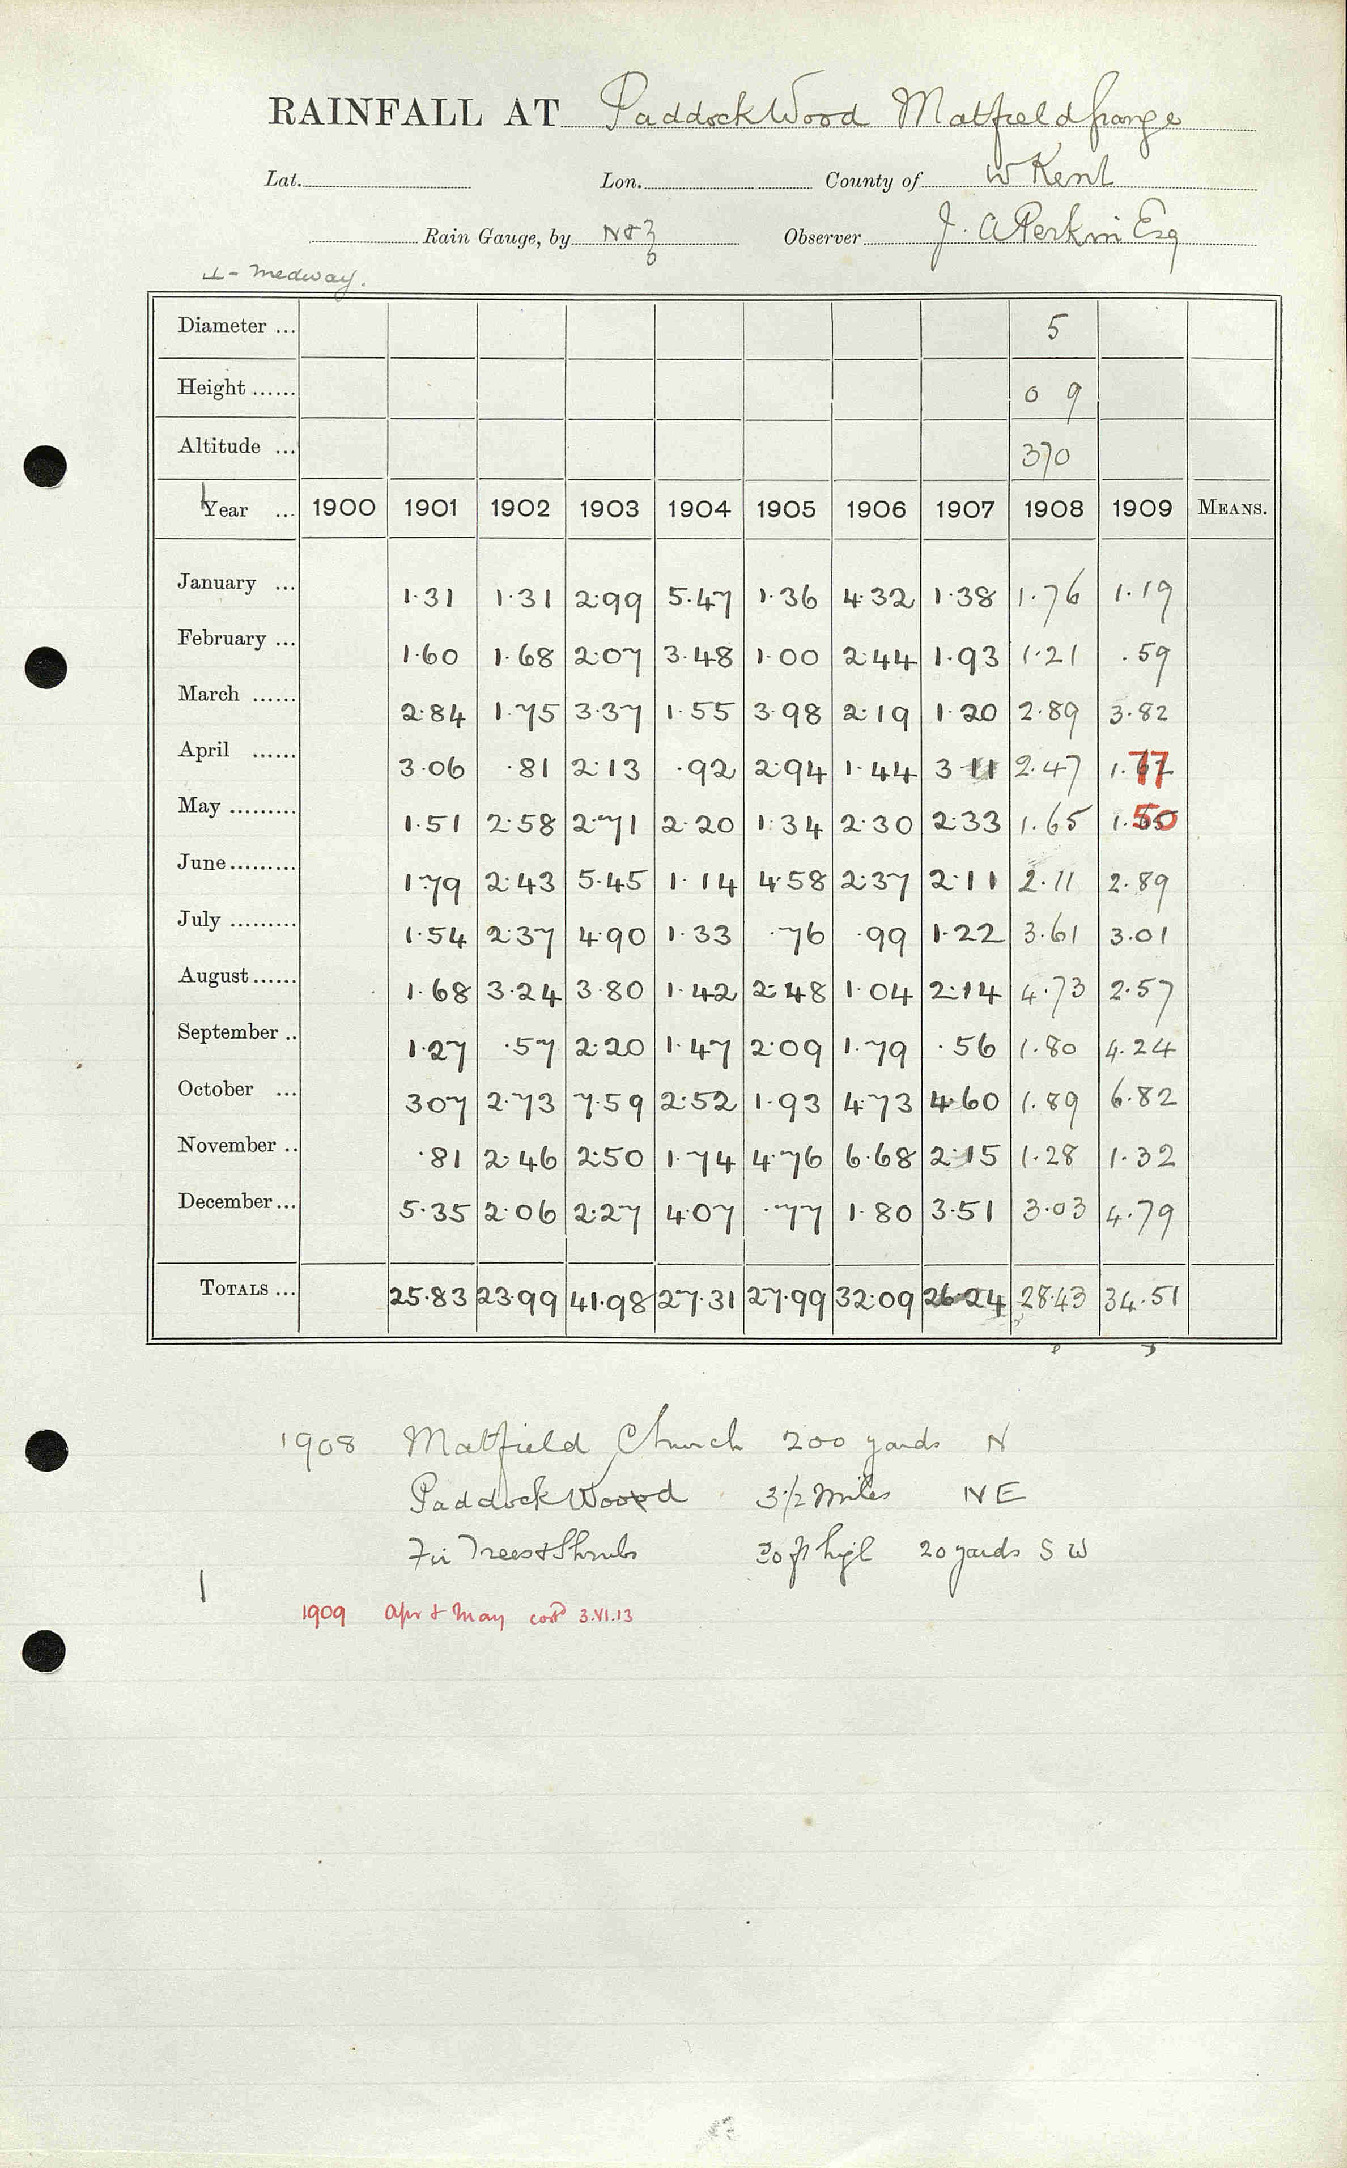 RAINFALL AT Paddock Wood Matfield Grange
Lat. Lon. County of W Kent
Rain Gauge, by N & Z Observer J. A Perkin Esq
Medway.
Diameter ... 5
Height ...... 0 9
Altitude ... 370
Year ... 1900 1901 1902 1903 1904 1905 1906 1907 1908 1909 MEANS.
January ... 1.31 1.31 2.99 5.47 1.36 4.32 1.38 1.76 1.19
February ... 1.60 1.68 2.07 3.48 1.00 2.44 1.93 1.21 .59
March ...... 2.84 1.75 3.37 1.55 3.98 2.19 1.20 2.89 3.82
April ...... 3.06 .81 2.13 .92 2.94 1.44 3.11 2.47 1.77
May ......... 1.51 2.58 2.71 2.20 1.34 2.30 2.33 1.65 1.50
June ......... 1.79 2.43 5.45 1.14 4.58 2.37 2.11 2.11 2.89
July ......... 1.54 2.37 4.90 1.33 .76 .99 1.22 3.61 3.01
August ...... 1.68 3.24 3.80 1.42 2.48 1.04 2.14 4.73 2.57
September .. 1.27 .57 2.20 1.47 2.09 1.79 .56 1.80 4.24
October ... 307 2.73 7.59 2.52 1.93 4.73 4.60 1.89 6.82
November .. .81 2.46 2.50 1.74 4.76 6.68 2.15 1.28 1.32
December ... 5.35 2.06 2.27 4.07 .77 1.80 3.51 3.03 4.79
TOTALS ... 25.83 23.99 41.98 27.31 27.99 32.09 26.24 28.43 34.51
1908 Matfield Church 200 yards N
Paddock Wood 3 1/2 Miles NE
Fir Trees & Shrubs 20 yards S W
1909 Apr & May corrd 3.VI.13